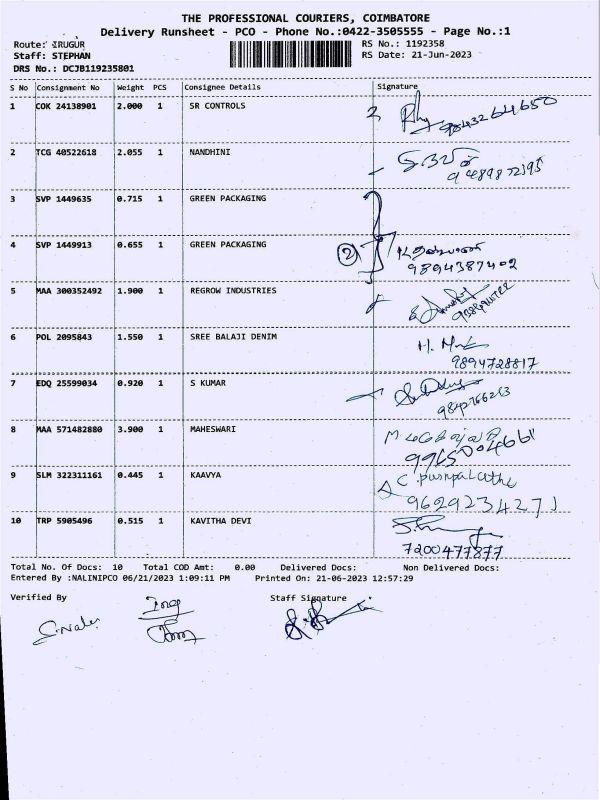 THE PROFESSIONAL COURIERS, COIMBATORE
Delivery Runsheet - PCO - Phone No.:0422-3505555 - Page No.:1
Route: IRUGUR RS No.: 1192358
Staff: STEPHAN RS Date: 21-Jun-2023
DRS No.: DCJB119235801
S No Consignment No Weight PCS Consignee Details Signature
1 COK 24138901 2.000 1 SR CONTROLS 9843264650
2 TCG 40522618 2.055 1 NANDHINI
3 SVP 1449635 0.715 1 GREEN PACKAGING
4 SVP 1449913 0.655 1 GREEN PACKAGING 2 9894387402
5 MAA 300352492 1.900 1 REGROW INDUSTRIES
6 POL 2095843 1.550 1 SREE BALAJI DENIM 9894728817
7 EDQ 25599034 0.920 1 S KUMAR
8 MAA 571482880 3.900 1 MAHESWARI
9 SLM 322311161 0.445 1 KAAVYA 9629234271
10 TRP 5905496 0.515 1 KAVITHA DEVI 7200477877
Total No. Of Docs: 10 Total COD Amt: 0.00 Delivered Docs: Non Delivered Docs:
Entered By :NALINIPCO 06/21/2023 1:09:11 PM Printed On: 21-06-2023 12:57:29
Verified By Staff Signature